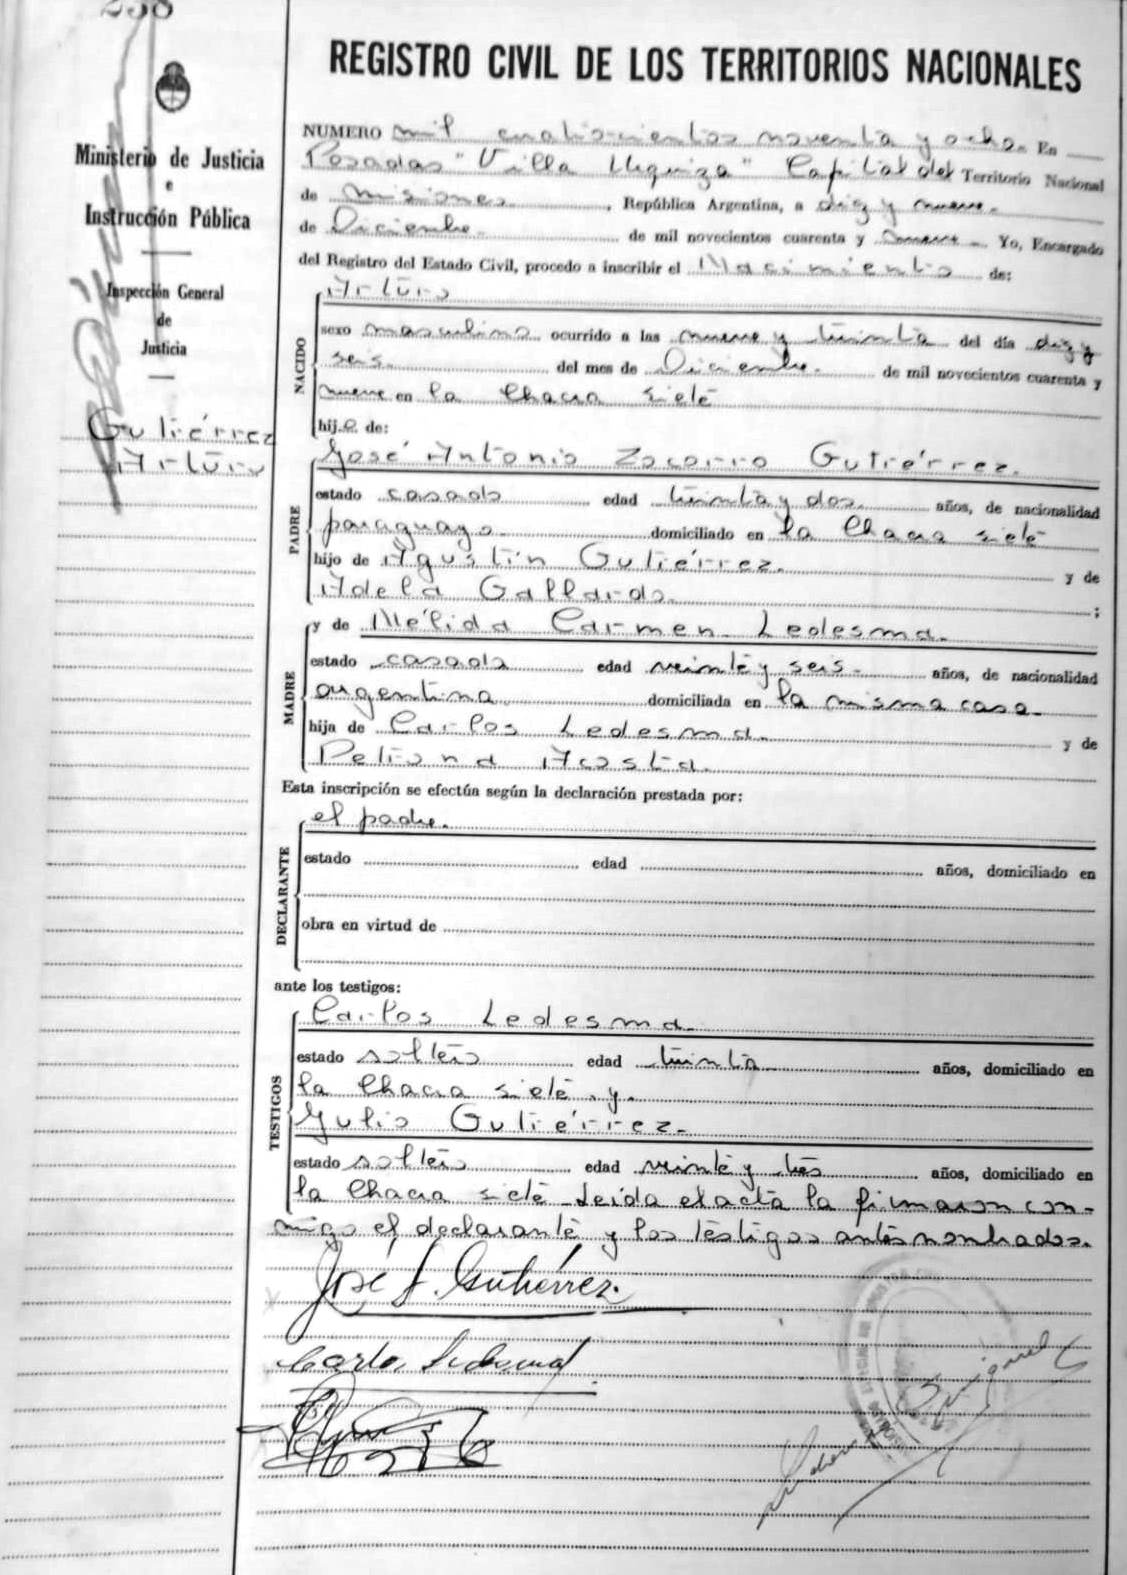 238
REGISTRO CIVIL DE LOS TERRITORIOS NACIONALES
Ministerio de Justicia
e
Instrucción Pública
Inspección General
de
Justicia
Gutiérrez
Arturo
NUMERO mil cuatrocientos noventa y ocho. En
Posadas "Villa Urquiza" Capital del Territorio Nacional
de Misiones, República Argentina, a diez y nueve
de Diciembre de mil novecientos cuarenta y nueve Yo, Encargado
del Registro del Estado Civil, procedo a inscribir el Nacimiento de:
NACIDO
Arturo
sexo masculino ocurrido a las nueve y treinta del día diez y
seis del mes de Diciembre de mil novecientos cuarenta y
nueve en la Chacra siete
hijo de:
PADRE
José Antonio Zocorro Gutiérrez.
estado casado edad treinta y dos años, de nacionalidad
paraguayo domiciliado en la Chacra siete
hijo de Agustín Gutiérrez. y de
Adela Gallardo. ;
MADRE
y de Nélida Carmen Ledesma.
estado casada edad veinte y seis años, de nacionalidad
argentina domiciliada en la misma casa
hija de Carlos Ledesma. y de
Petrona Acosta.
Esta inscripción se efectúa según la declaración prestada por:
DECLARANTE
el padre.
estado edad años, domiciliado en
obra en virtud de
ante los testigos:
TESTIGOS
Carlos Ledesma
estado soltero edad treinta años, domiciliado en
la Chacra siete y.
Julio Gutiérrez.
estado soltero edad veinte y tres años, domiciliado en
la Chacra siete. Leída el acta la firmaron con-
migo el declarante y los testigos antes nombrados.
José A. Gutiérrez.
Carlos Ledesma